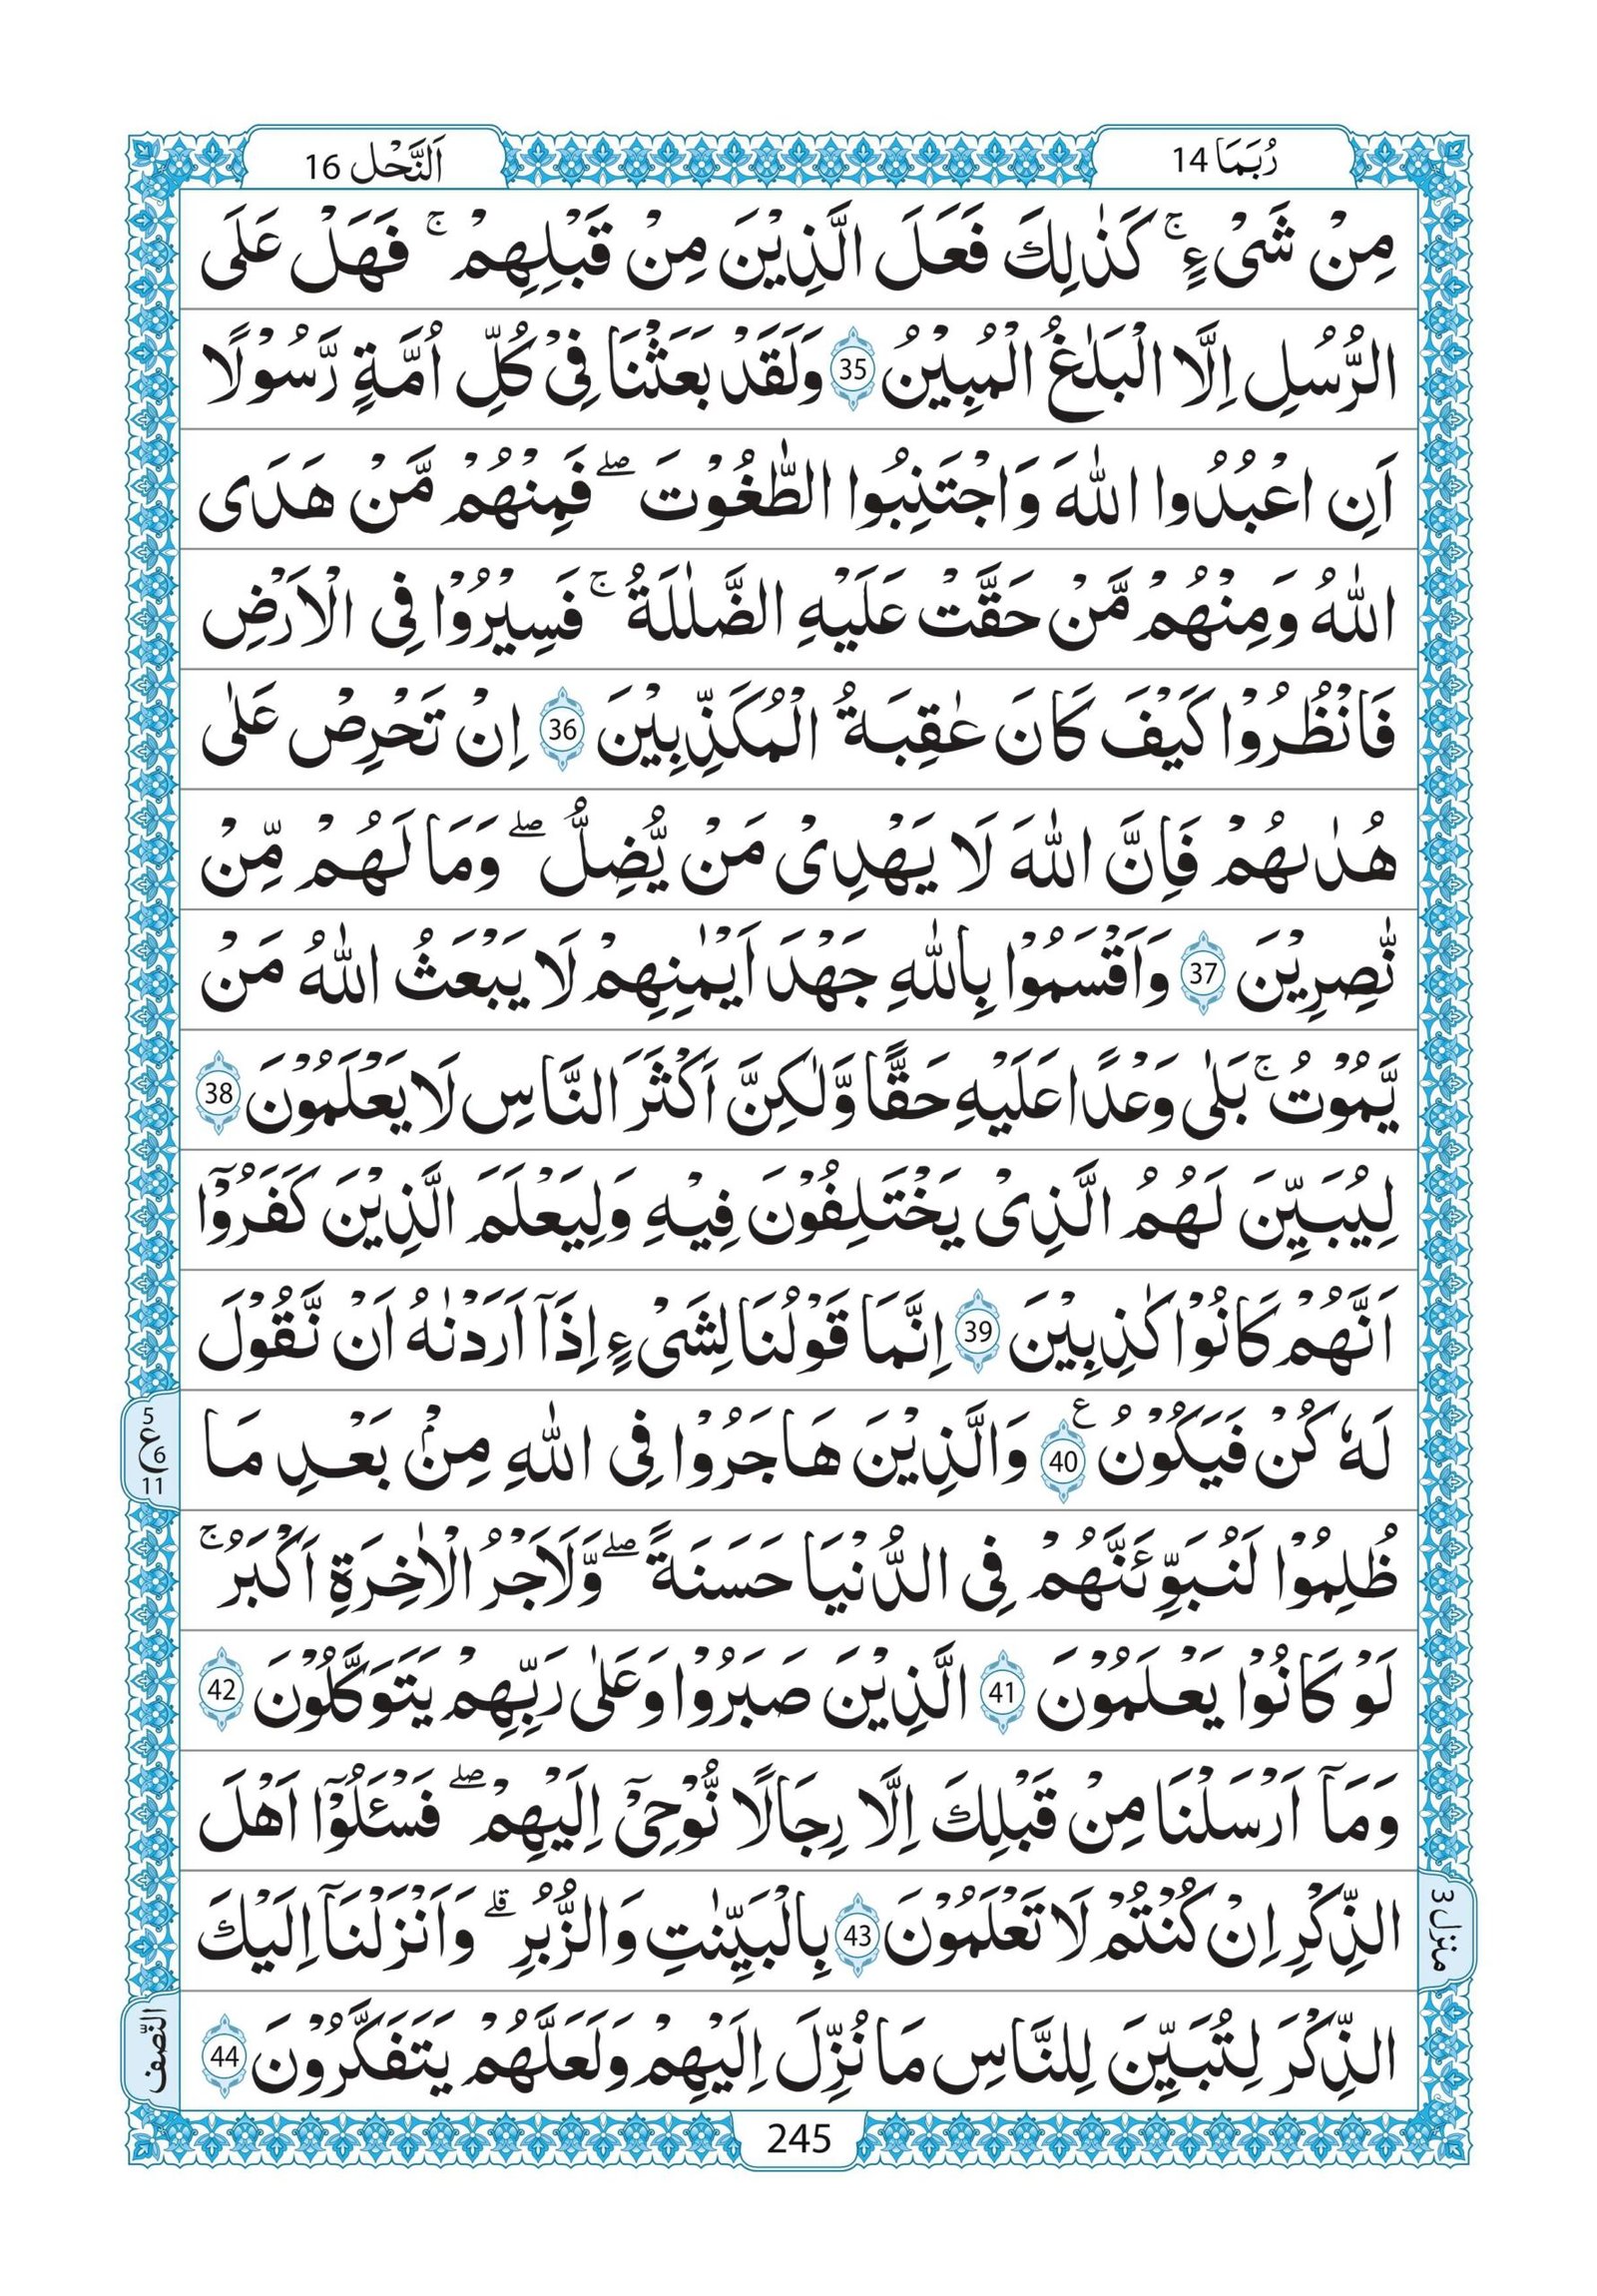 رُبَمَا 14
اَلنَّحْل 16
مِنْ شَیْءٍ ۚ كَذٰلِكَ فَعَلَ الَّذِیْنَ مِنْ قَبْلِهِمْ ۚ فَهَلْ عَلَی
الرُّسُلِ اِلَّا الْبَلٰغُ الْمُبِیْنُ 35 وَلَقَدْ بَعَثْنَا فِیْ كُلِّ اُمَّةٍ رَّسُوْلًا
اَنِ اعْبُدُوا اللّٰهَ وَاجْتَنِبُوا الطّٰغُوْتَ ۖ فَمِنْهُمْ مَّنْ هَدَی
اللّٰهُ وَمِنْهُمْ مَّنْ حَقَّتْ عَلَیْهِ الضَّلٰلَةُ ۚ فَسِیْرُوْا فِی الْاَرْضِ
فَانْظُرُوْا كَیْفَ كَانَ عٰقِبَةُ الْمُكَذِّبِیْنَ 36 اِنْ تَحْرِصْ عَلٰی
هُدٰىهُمْ فَاِنَّ اللّٰهَ لَا یَهْدِیْ مَنْ یُّضِلُّ ۖ وَمَا لَهُمْ مِّنْ
نّٰصِرِیْنَ 37 وَاَقْسَمُوْا بِاللّٰهِ جَهْدَ اَیْمٰنِهِمْ لَا یَبْعَثُ اللّٰهُ مَنْ
یَّمُوْتُ ۚ بَلٰی وَعْدًا عَلَیْهِ حَقًّا وَّلٰكِنَّ اَكْثَرَ النَّاسِ لَا یَعْلَمُوْنَ 38
لِیُبَیِّنَ لَهُمُ الَّذِیْ یَخْتَلِفُوْنَ فِیْهِ وَلِیَعْلَمَ الَّذِیْنَ كَفَرُوْٓا
اَنَّهُمْ كَانُوْا كٰذِبِیْنَ 39 اِنَّمَا قَوْلُنَا لِشَیْءٍ اِذَآ اَرَدْنٰهُ اَنْ نَّقُوْلَ
لَهٗ كُنْ فَیَكُوْنُ ع 40 وَالَّذِیْنَ هَاجَرُوْا فِی اللّٰهِ مِنْۢ بَعْدِ مَا
5 ع 6 11
ظُلِمُوْا لَنُبَوِّئَنَّهُمْ فِی الدُّنْیَا حَسَنَةً ۖ وَّلَاَجْرُ الْاٰخِرَةِ اَكْبَرُ ۚ
لَوْ كَانُوْا یَعْلَمُوْنَ 41 الَّذِیْنَ صَبَرُوْا وَعَلٰی رَبِّهِمْ یَتَوَكَّلُوْنَ 42
وَمَآ اَرْسَلْنَا مِنْ قَبْلِكَ اِلَّا رِجَالًا نُّوْحِیْٓ اِلَیْهِمْ ۖ فَسْـَٔلُوْٓا اَهْلَ
الذِّكْرِ اِنْ كُنْتُمْ لَا تَعْلَمُوْنَ 43 بِالْبَیِّنٰتِ وَالزُّبُرِ ۗ وَاَنْزَلْنَآ اِلَیْكَ
منزل 3
الذِّكْرَ لِتُبَیِّنَ لِلنَّاسِ مَا نُزِّلَ اِلَیْهِمْ وَلَعَلَّهُمْ یَتَفَكَّرُوْنَ 44
النّصف
245